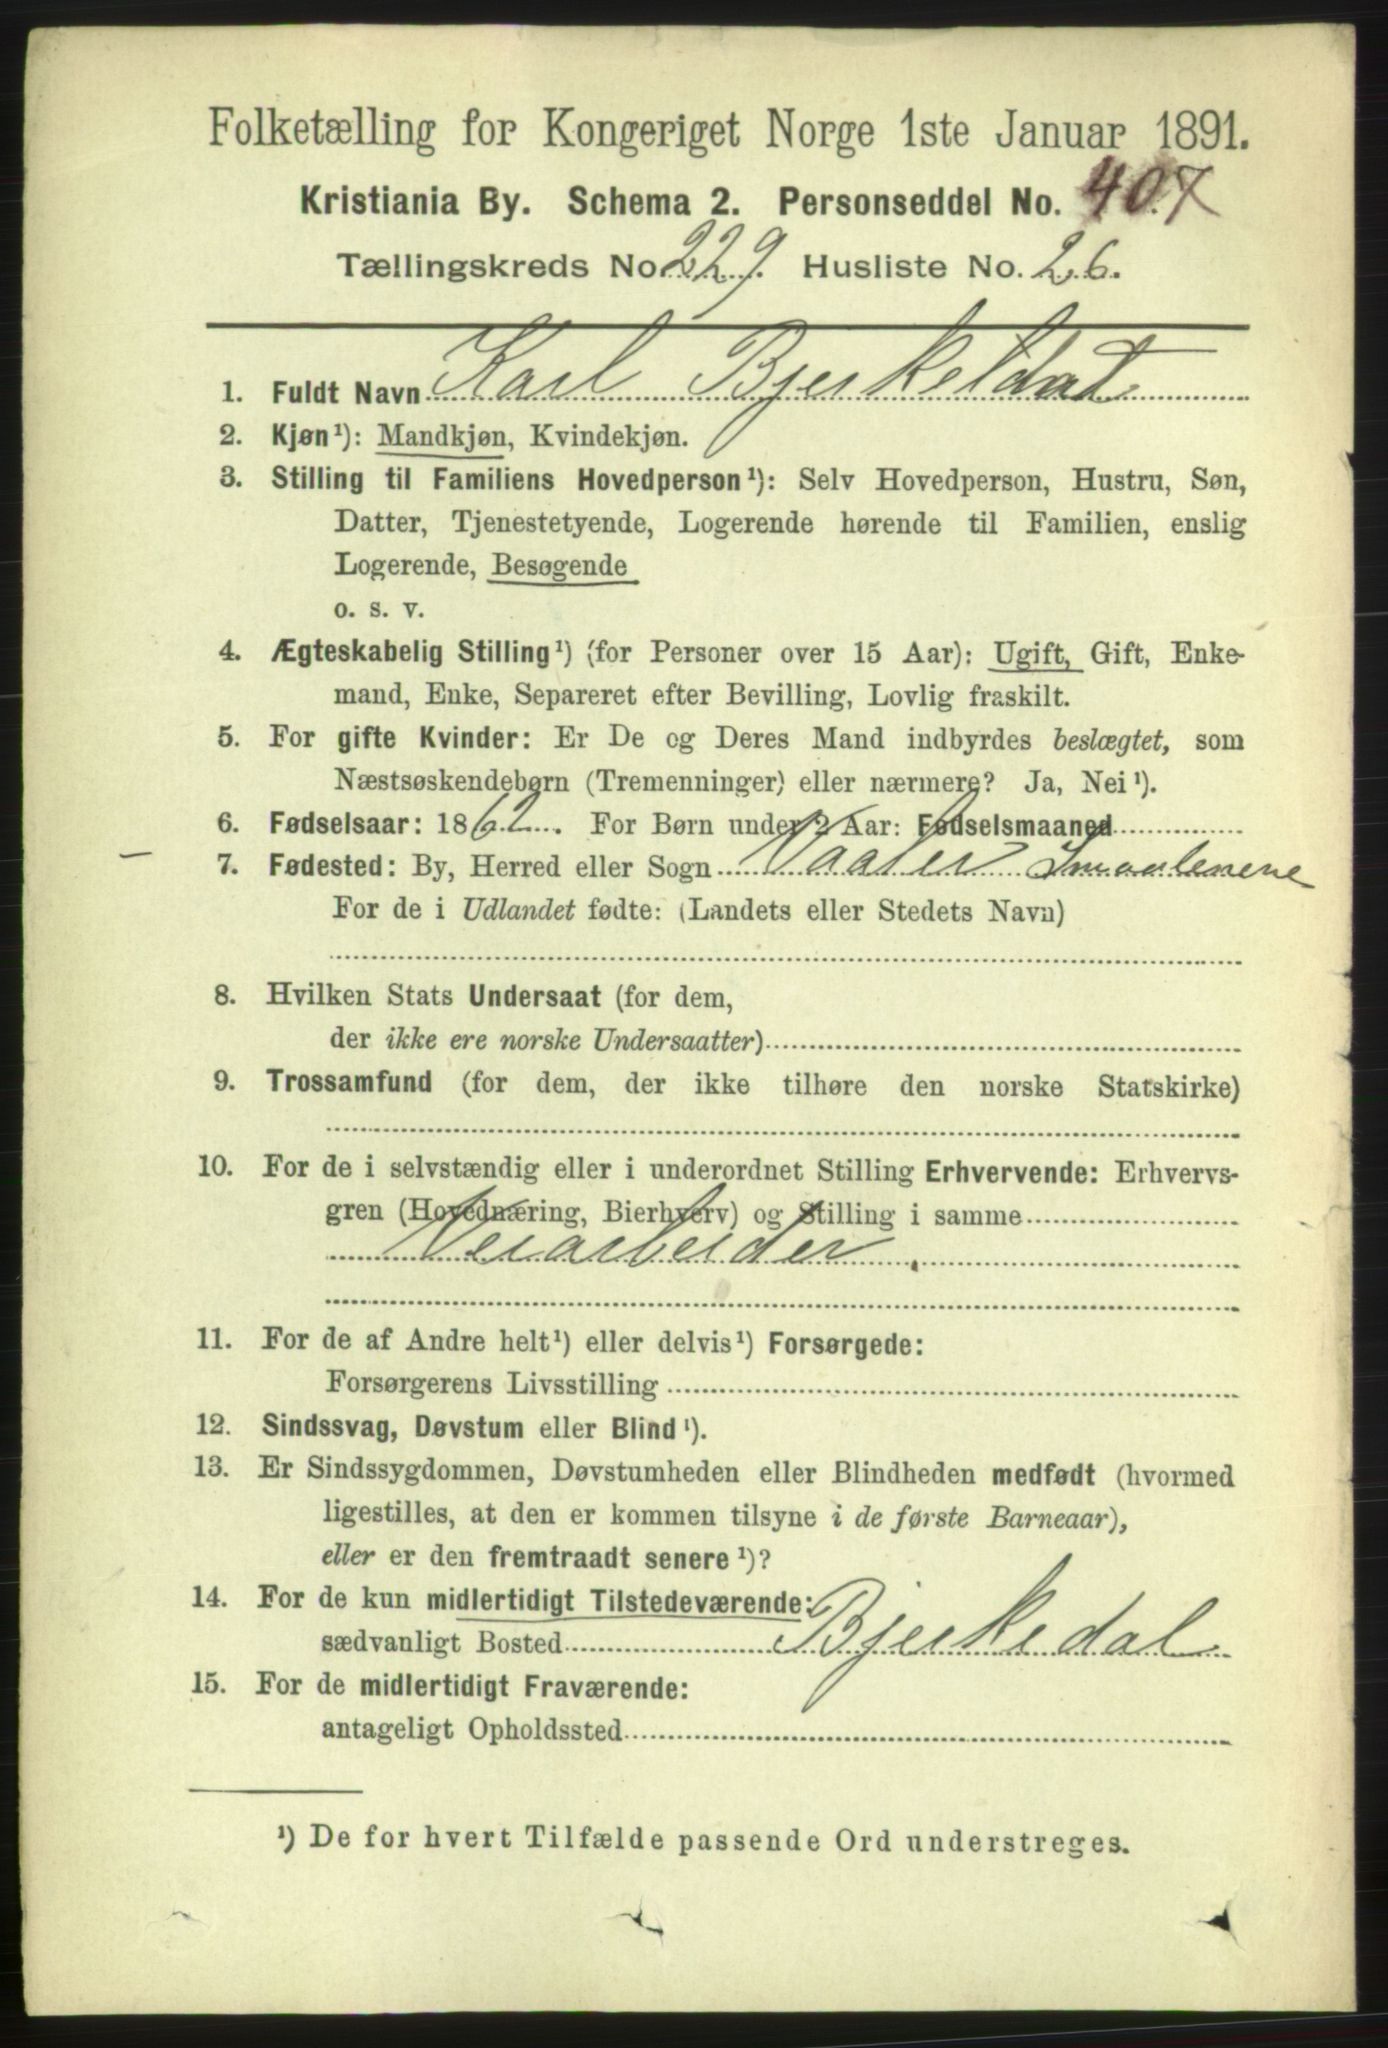 Folketælling for Kongeriget Norge 1ste Januar 1891.
Kristiania By. Schema 2. Personseddel No. 407
Tællingskreds No. 229. Husliste No. 26.
1. Fuldt Navn Karl Bjerkeldal
2. Kjøn¹): Mandkjøn, Kvindekjøn.
3. Stilling til Familiens Hovedperson¹): Selv Hovedperson, Hustru, Søn,
Datter, Tjenestetyende, Logerende hørende til Familien, enslig
Logerende, Besøgende
o. s. v.
4. Ægteskabelig Stilling¹) (for Personer over 15 Aar): Ugift, Gift, Enke-
mand, Enke, Separeret efter Bevilling, Lovlig fraskilt.
5. For gifte Kvinder: Er De og Deres Mand indbyrdes beslægtet, som
Næstsøskendebørn (Tremenninger) eller nærmere? Ja, Nei¹).
6. Fødselsaar: 1862. For Børn under 2 Aar: Fødselsmaaned
7. Fødested: By, Herred eller Sogn Vaaler Smaalenene
For de i Udlandet fødte: (Landets eller Stedets Navn)
8. Hvilken Stats Undersaat (for dem,
der ikke ere norske Undersaatter)
9. Trossamfund (for dem, der ikke tilhøre den norske Statskirke)
10. For de i selvstændig eller i underordnet Stilling Erhvervende: Erhvervs-
gren (Hovednæring, Bierhverv) og Stilling i samme
Veiarbeider
11. For de af Andre helt¹) eller delvis¹) Forsørgede:
Forsørgerens Livsstilling
12. Sindssvag, Døvstum eller Blind¹).
13. Er Sindssygdommen, Døvstumheden eller Blindheden medfødt (hvormed
ligestilles, at den er kommen tilsyne i de første Barneaar),
eller er den fremtraadt senere¹)?
14. For de kun midlertidigt Tilstedeværende:
sædvanligt Bosted Bjerkedal
15. For de midlertidigt Fraværende:
antageligt Opholdssted
¹) De for hvert Tilfælde passende Ord understreges.